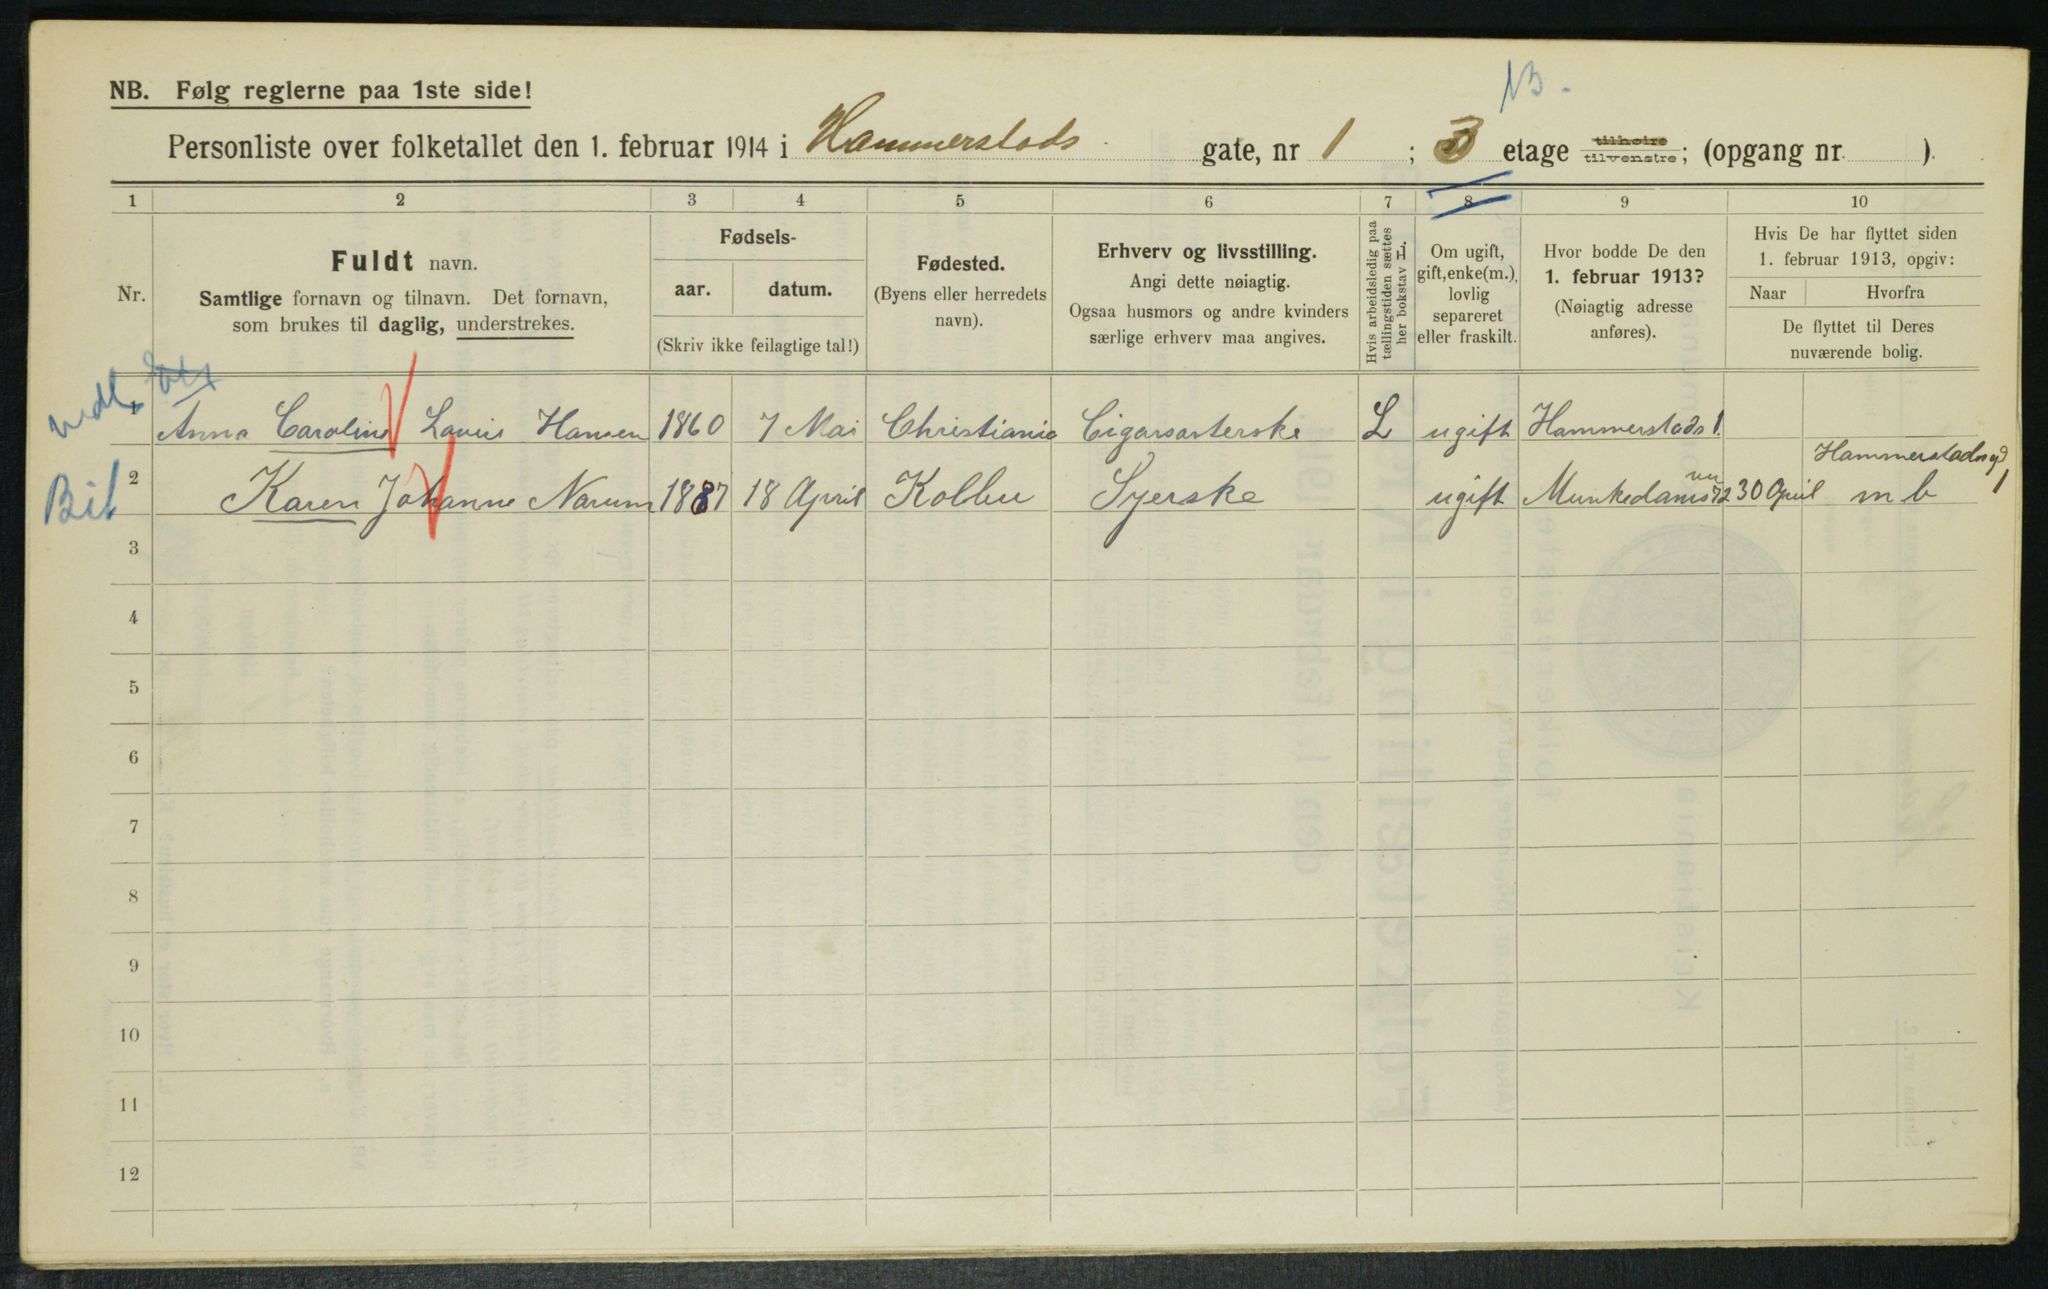 NB.
NB. Følg reglerne paa 1ste side!
Personliste over folketallet den 1. februar 1914 i Hammerstads gate, nr 1 ; 3 etage tilhøire tilvenstre; (opgang nr. ).
1 2 3 4 5 6 7 8 9 10
Nr.
Fuldt navn.
Samtlige fornavn og tilnavn. Det fornavn,
som brukes til daglig, understrekes.
Fødsels-
aar. datum.
(Skriv ikke feilagtige tal!)
Fødested.
(Byens eller herredets
navn).
Erhverv og livsstilling.
Angi dette nøiagtig.
Ogsaa husmors og andre kvinders
særlige erhverv maa angives.
Hvis arbeidsledig paa
tællingstiden sættes
her bokstav L.
Om ugift,
gift, enke(m.),
lovlig
separeret
eller fraskilt.
Hvor bodde De den
1. februar 1913?
(Nøiagtig adresse
anføres).
Hvis De har flyttet siden
1. februar 1913, opgiv:
Naar Hvorfra
De flyttet til Deres
nuværende bolig.
1 Anna Caroline Lovise Hansen 1860 7 Mai Christiania Cigararterske L ugift Hammerstads 1.
Hammerstadsgd 1
2 Karen Johanne Narum 1887 18 April Kolbu Syerske ugift Munkedamsv 72 30 April m b
Bit
3
4
5
6
7
8
9
10
11
12